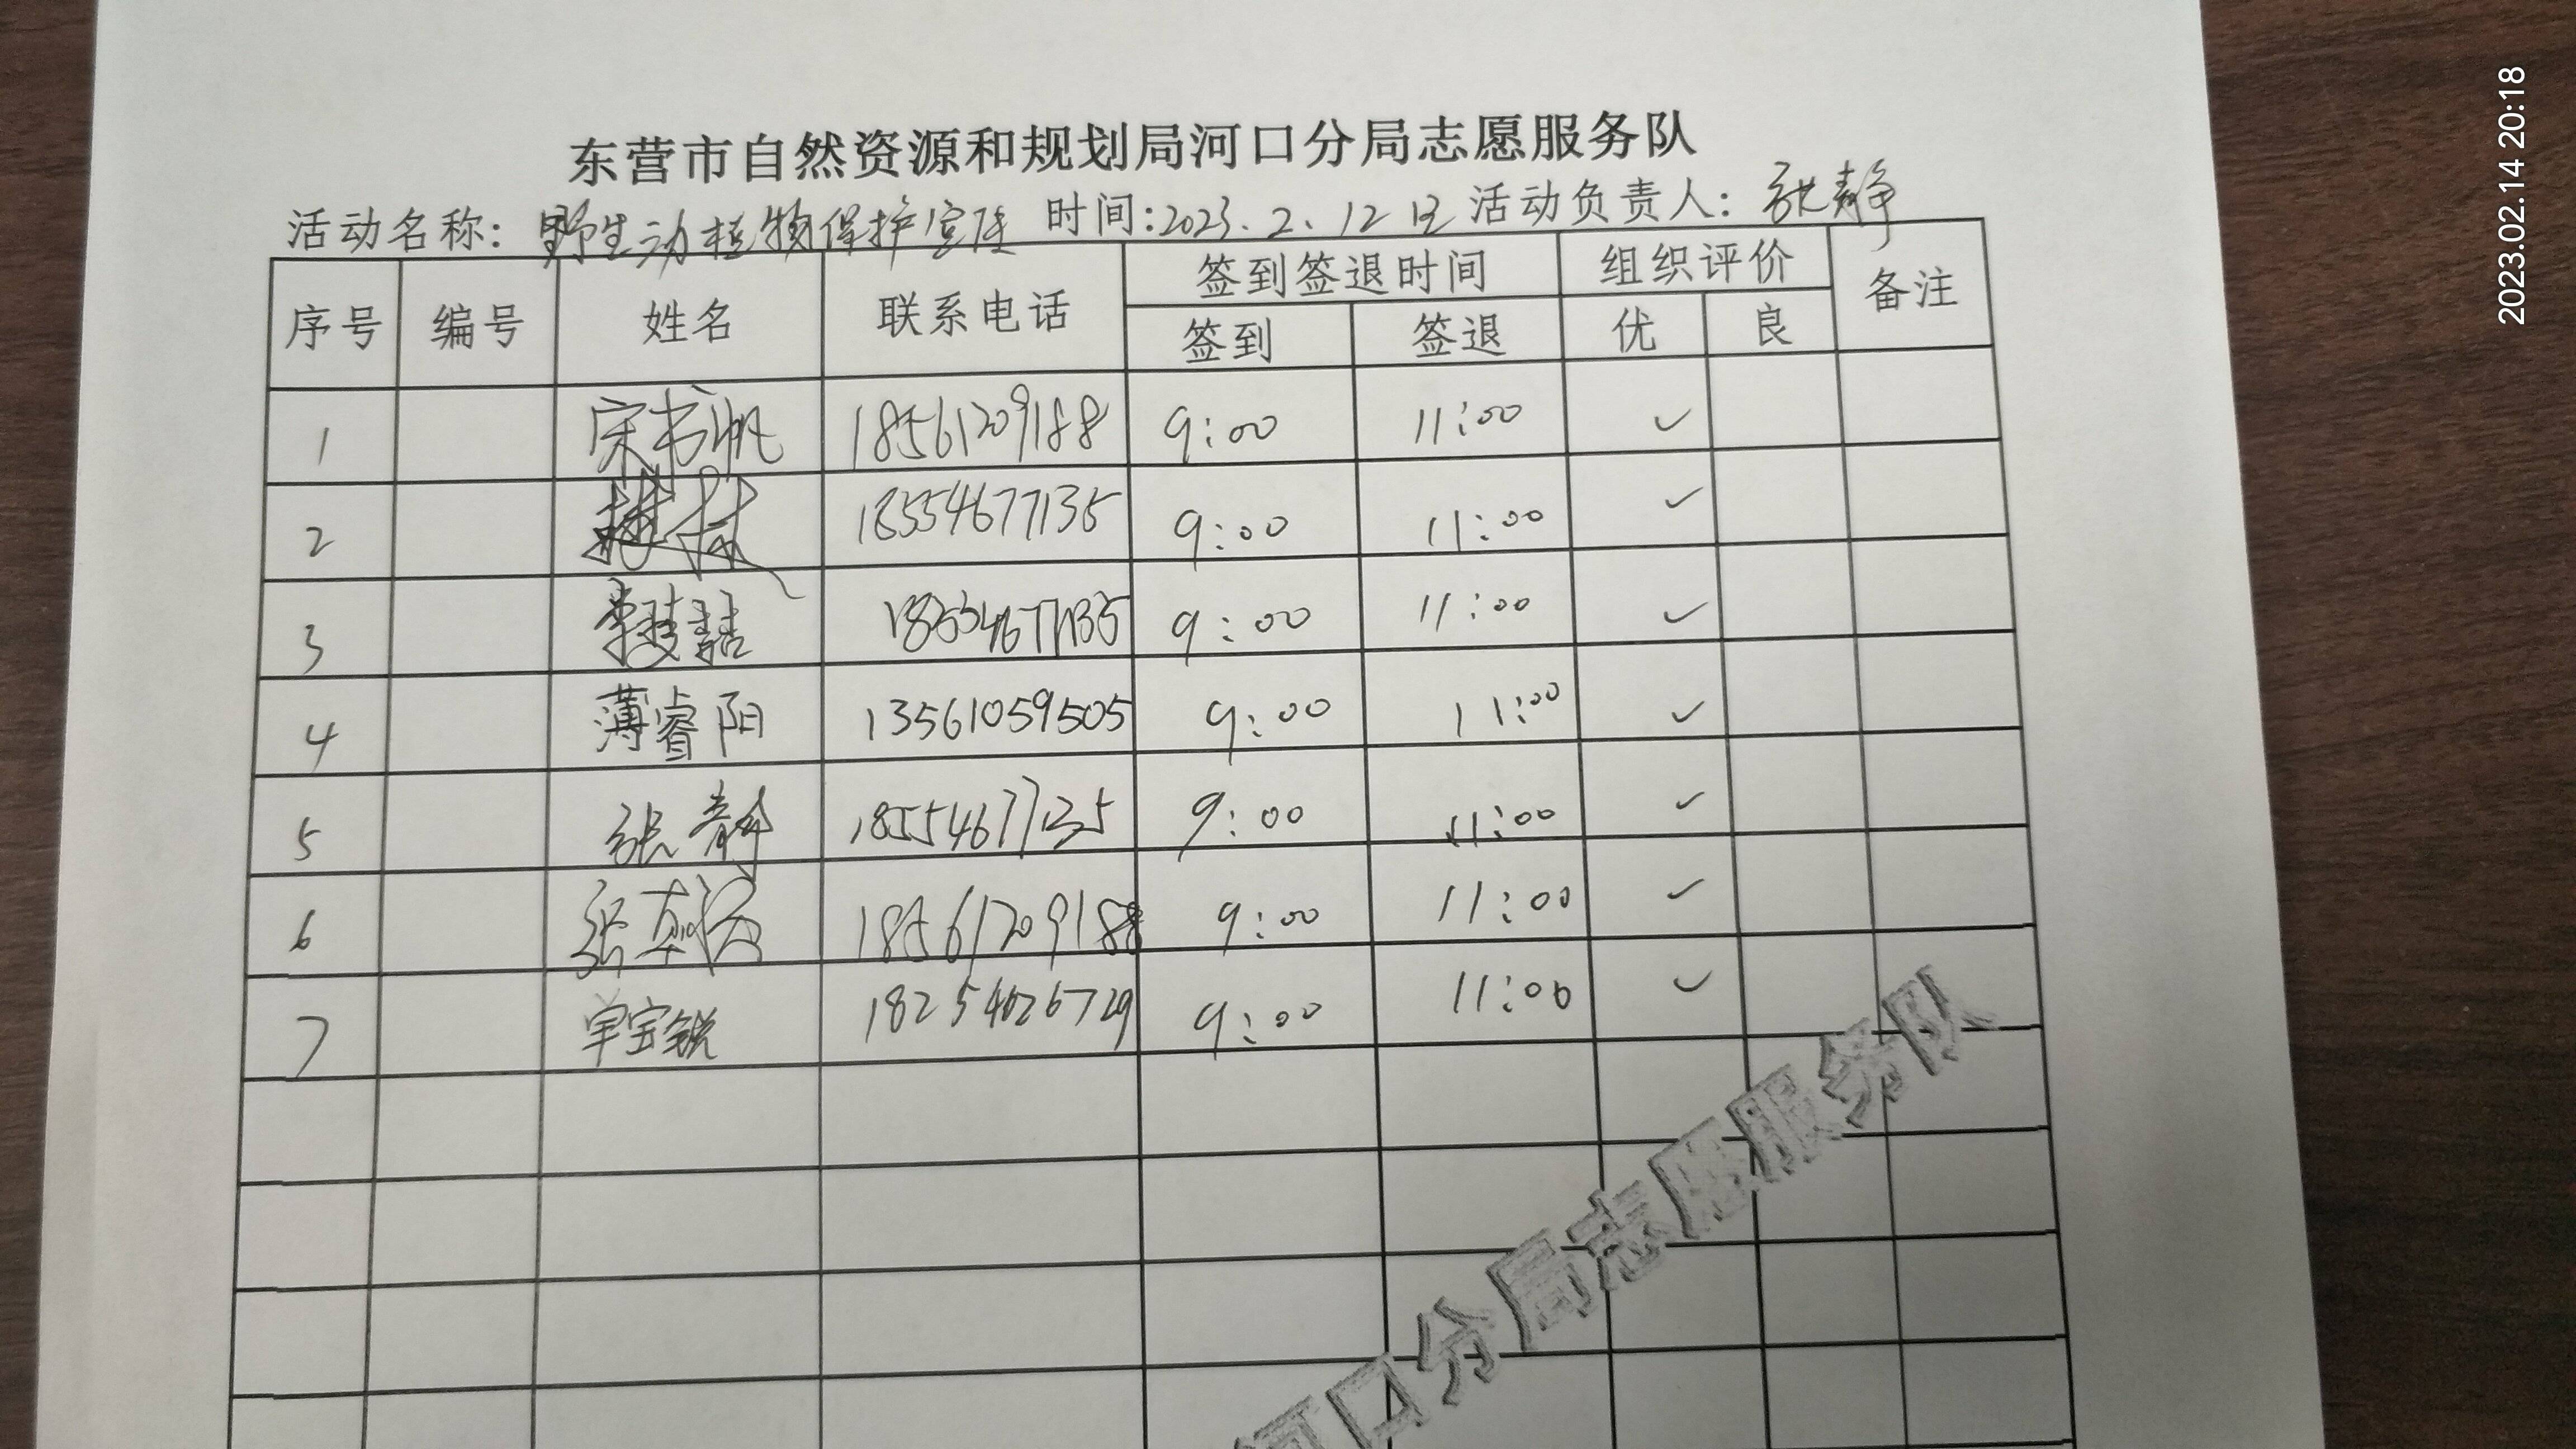 东营市自然资源和规划局河口分局志愿服务队
活动名称：野生动植物保护宣传 时间：2023.2.12日 活动负责人：张静
序号 编号 姓名 联系电话 签到签退时间 组织评价 备注
签到 签退 优 良
1 宋书帆 18561209188 9:00 11:00 ✓
2 18554677135 9:00 11:00 ✓
3 18554677135 9:00 11:00 ✓
4 薄睿阳 13561059505 9:00 11:00 ✓
5 张静 18554677135 9:00 11:00 ✓
6 张 18561209188 9:00 11:00 ✓
7 宝锐 18254626729 9:00 11:00 ✓
河口分局志愿服务队
2023.02.14 20:18